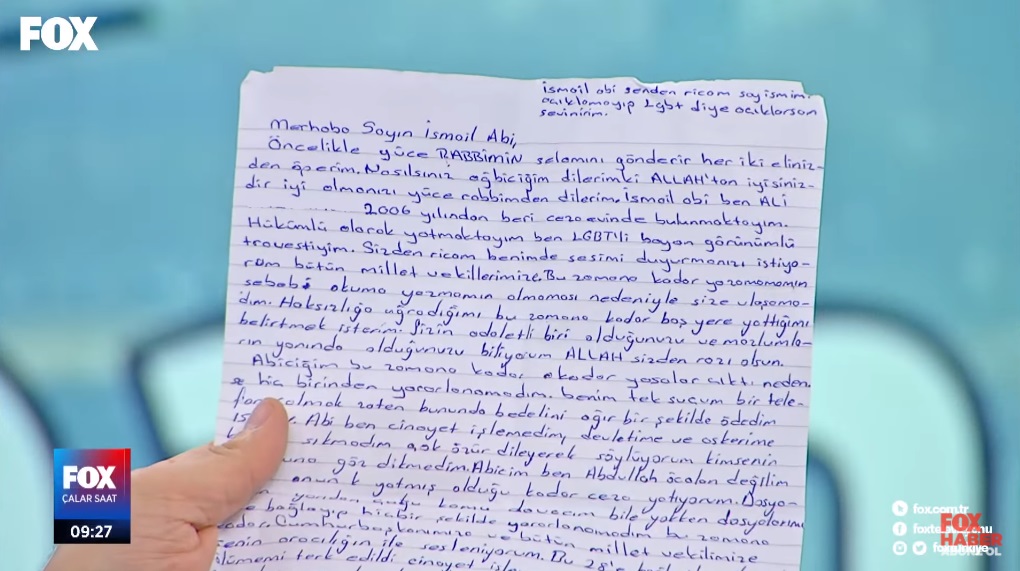 FOX
İsmail abi senden ricam soyismimi
açıklamayıp Lgbt diye açıklarsan
sevinirim.
Merhaba Sayın İsmail Abi,
Öncelikle yüce RABBİMİN selamını gönderir her iki eliniz-
den öperim. Nasılsınız ağbiciğim dilerimki ALLAH'tan iyisiniz-
dir iyi olmanızı yüce rabbimden dilerim. İsmail abi ben ALİ
2006 yılından beri cezaevinde bulunmaktayım.
Hükümlü olarak yatmaktayım ben LGBT'li bayan görünümlü
travestiyim. Sizden ricam benimde sesimi duyurmanızı istiyo-
rum bütün millet vekillerimize. Bu zamana kadar yazamamamın
sebebi okuma yazmamın olmaması nedeniyle size ulaşama-
dım. Haksızlığa uğradığımı bu zamana kadar boş yere yattığımı
belirtmek isterim. Sizin adaletli biri olduğunuzu ve mazlumla-
rın yanında olduğunuzu biliyorum ALLAH sizden razı olsun.
Abiciğim bu zamana kadar okadar yasalar çıktı neden-
se hiç birinden yararlanamadım. benim tek suçum bir tele-
çalmak zaten bununda bedelini ağır bir şekilde ödedim
Abi ben cinayet işlemedim, devletime ve askerime
sıkmadım çok özür dileyerek söylüyorum kimsenin
göz dikmedim. Abicim ben Abdullah öcalan değilim
onun yatmış olduğu kadar ceza yatıyorum. Dosya-
kamu davacım bile yokken dosyalarımı
bağlayıp hiçbir şekilde yararlanamadım bu zamana
kadar. Cumhurbaşkanımıza ve bütün millet vekilimize
senin aracılığın ile sesleniyorum. Bu 28'e
terk edildi cinayet
FOX
ÇALAR SAAT
09:27
fox.com.tr
FOX
HABER
ABONE OL